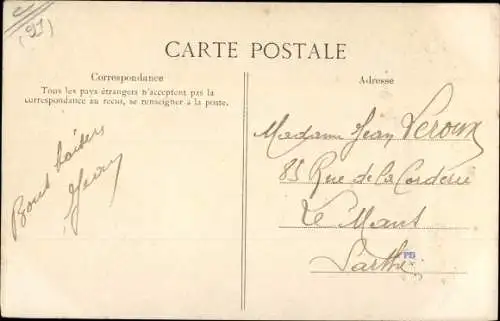 (91)
CARTE POSTALE
Correspondance
Tous les pays étrangers n'acceptent pas la
correspondance au recto, se renseigner à la poste.
Bons baisers
Jean
Adresse
Madame Jean Leroux
85 Rue de la Corderie
Le Mans
Sarthe
PB